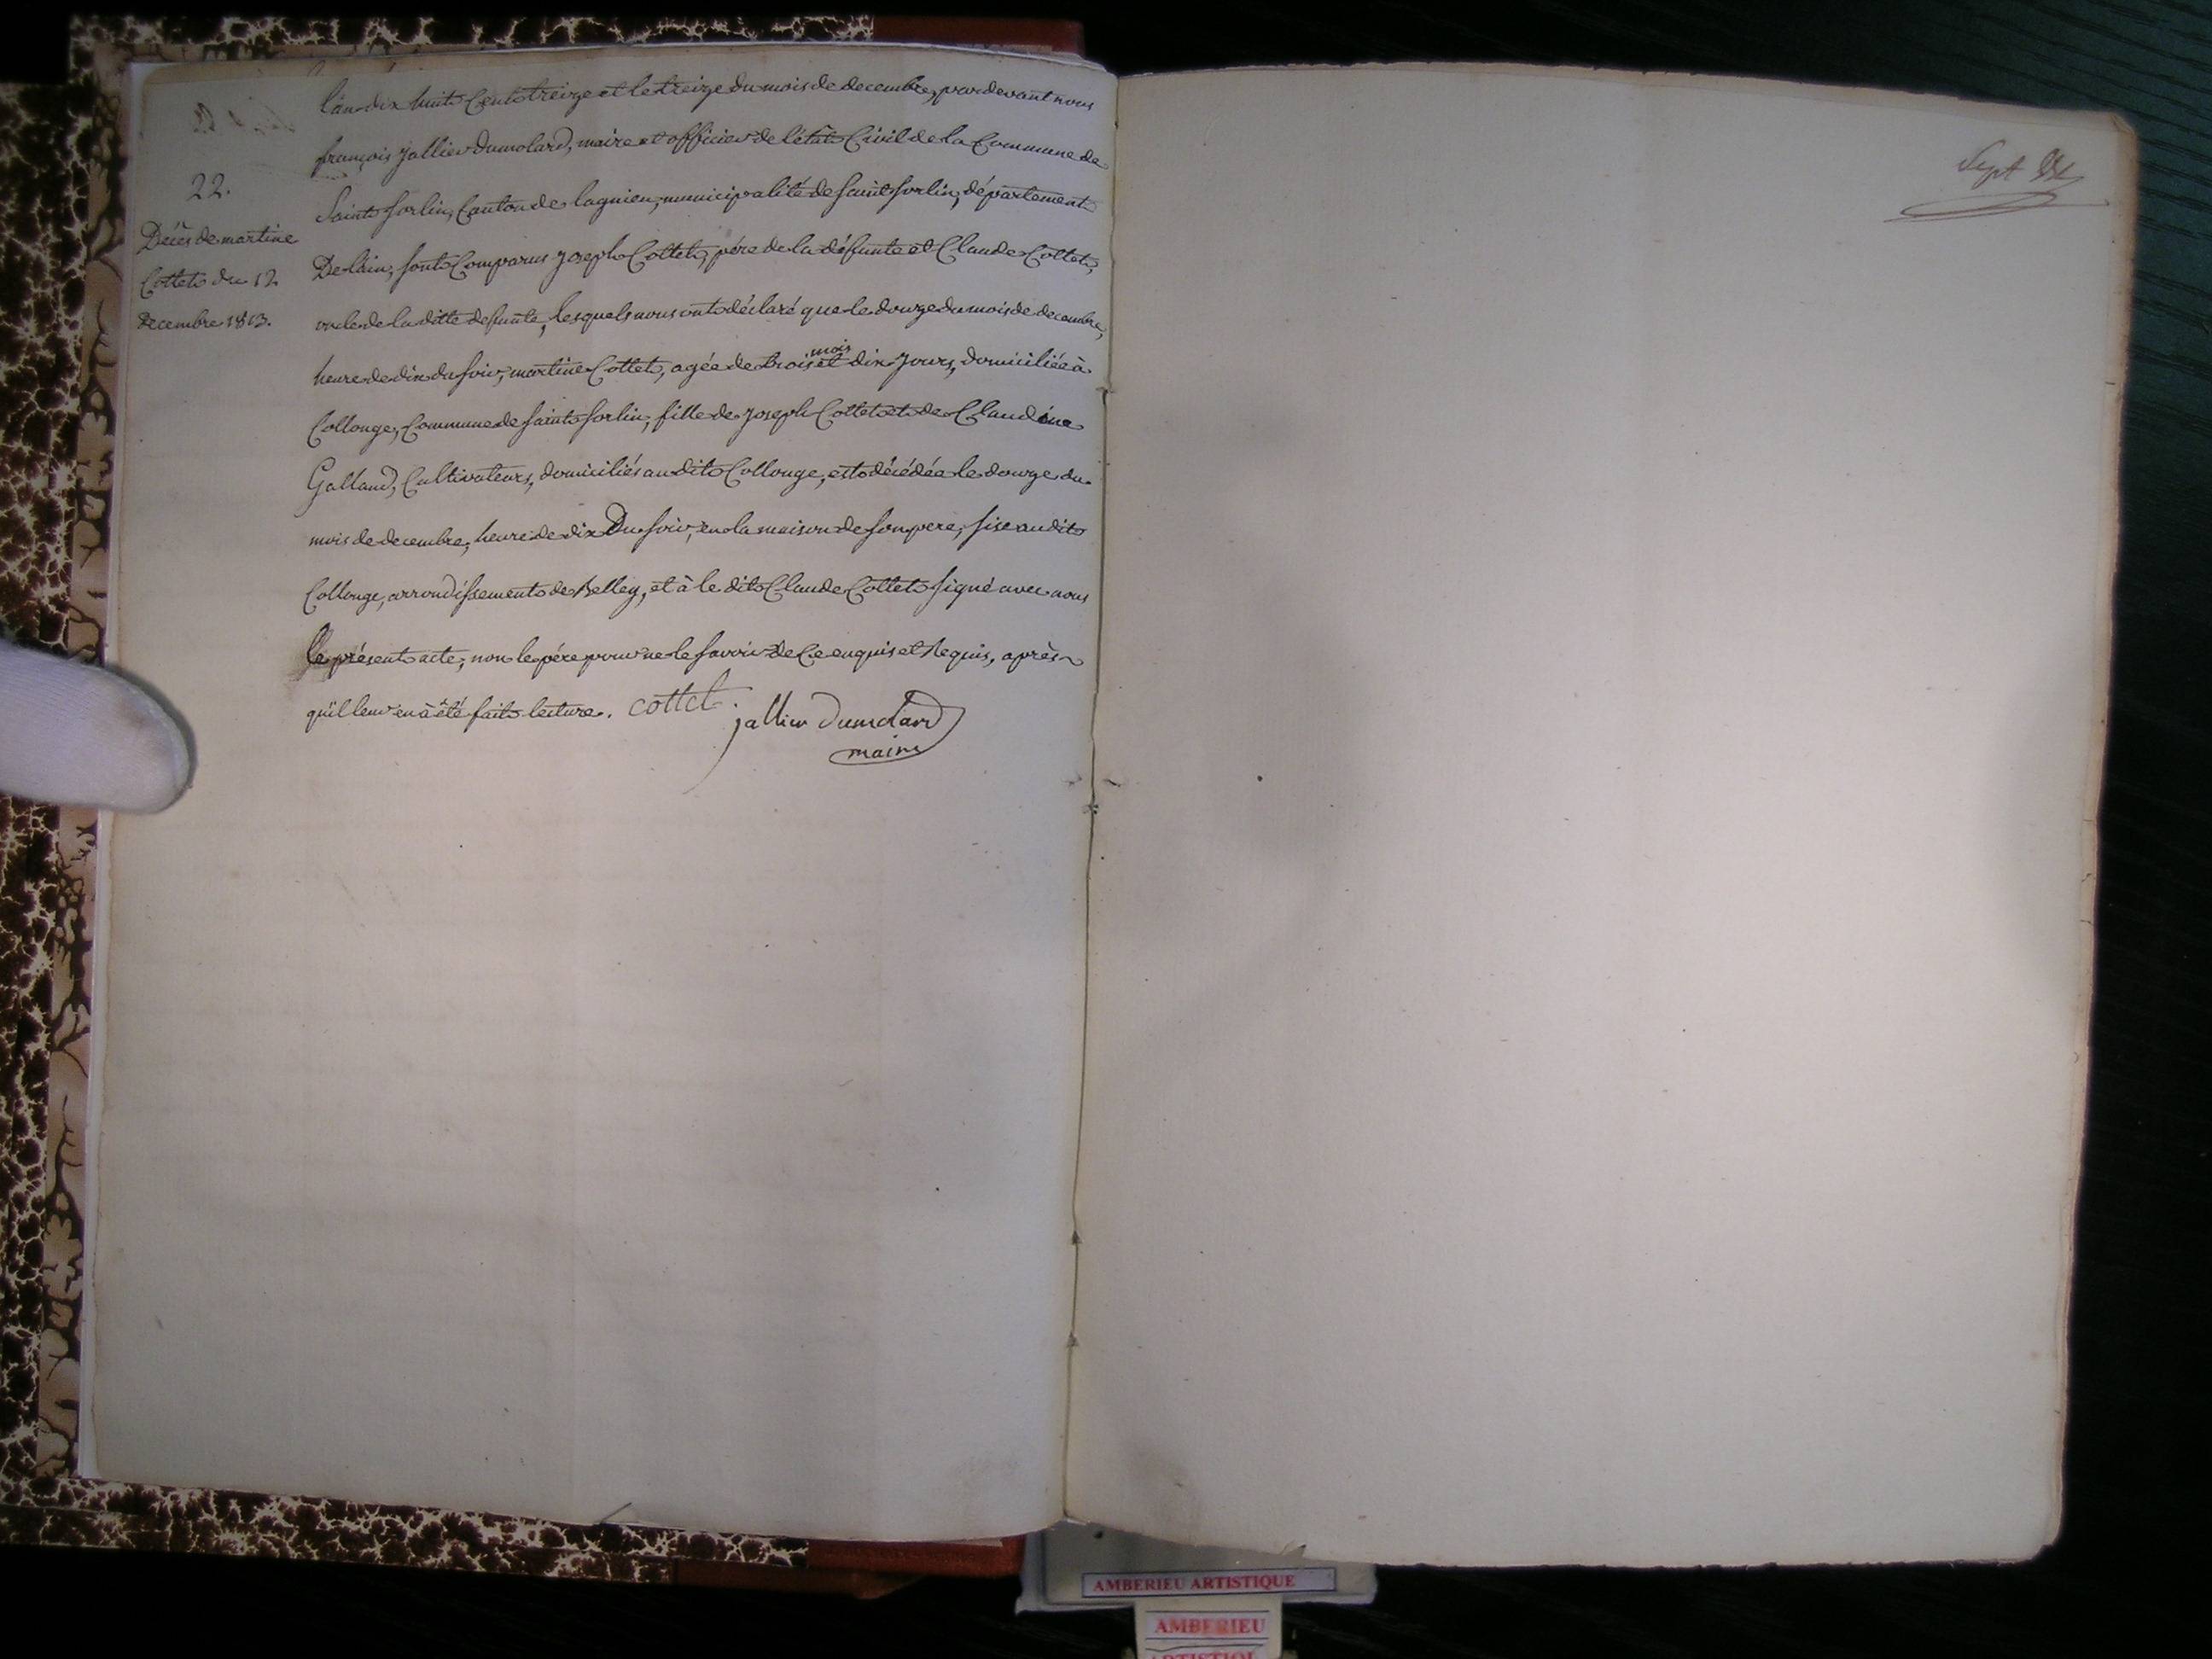 22.
Décès de martine
Cottet du 12
decembre 1813.
l'an dix huit Cent treize et le treize du mois de decembre, pardevant nous
françois Jallier dumolard, maire et officier de l'état Civil de la Commune de
Saint Sorlin, Canton de lagnieu, municipalité de saint sorlin, département
De l'ain, sont Comparus Joseph Cottet, pére de la défunte et Claude Cottet,
oncle de la ditte defunte, lesquels nous ont déclaré que le douze du mois de decembre,
heure de dix du soir, martine Cottet, agée de trois mois et dix Jours, domiciliée à
Collonge, Commune de saint sorlin, fille de Joseph Cottet et de Claudine
Galland, Cultivateurs, domiciliés au dit Collonge, est décédée le douze du
mois de decembre, heure de dix Du soir, en la maison de son pere, sise au dit
Collonge, arrondissement de Belley, et à le dit Claude Cottet signé avec nous
le présent acte, non le pére pour ne le savoir de Ce enquis et Requis, après
qu'il leur en à été fait lecture. cottet.
jallier dumolard
maire
Sept
AMBERIEU ARTISTIQUE
AMBERIEU
ARTISTIQUE